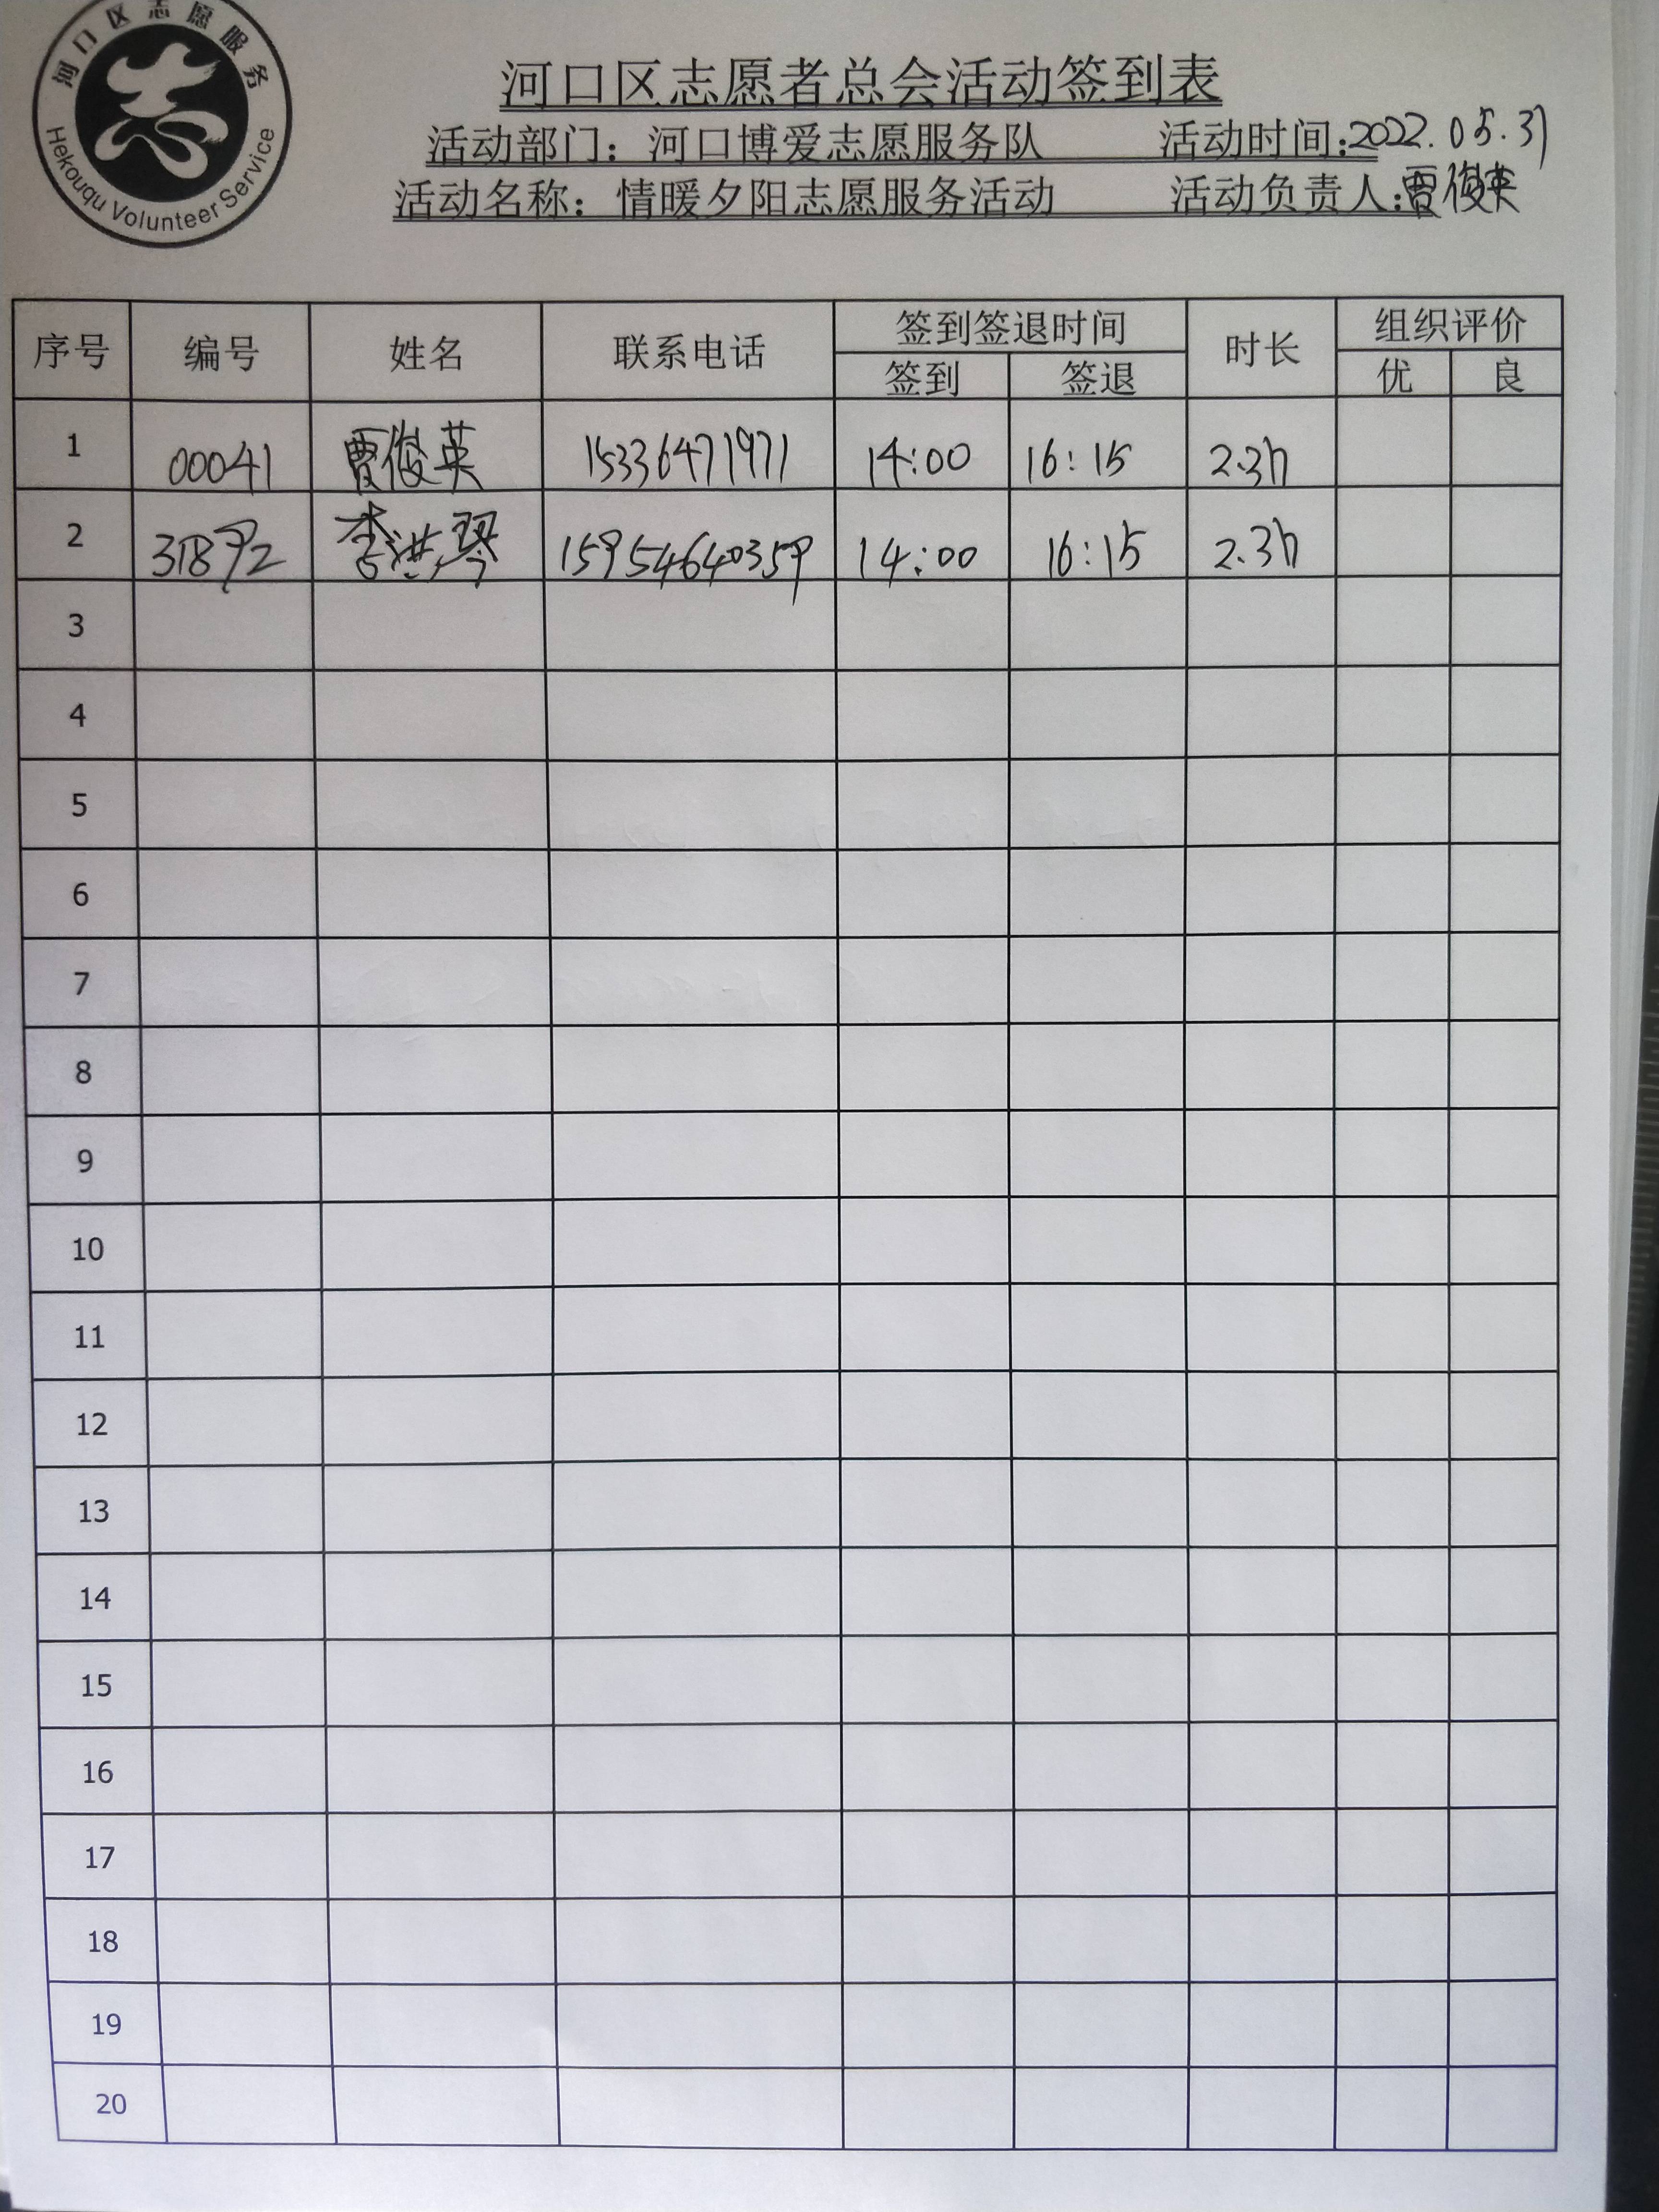 河口区志愿服务
Hekouqu Volunteer Service
河口区志愿者总会活动签到表
活动部门：河口博爱志愿服务队 活动时间:2022.05.31
活动名称：情暖夕阳志愿服务活动 活动负责人:贾俊英
序号 编号 姓名 联系电话 签到签退时间 时长 组织评价
签到 签退 优 良
1 00041 贾俊英 15336471971 14:00 16:15 2.3h
2 31892 李洪琴 15954640359 14:00 16:15 2.3h
3
4
5
6
7
8
9
10
11
12
13
14
15
16
17
18
19
20